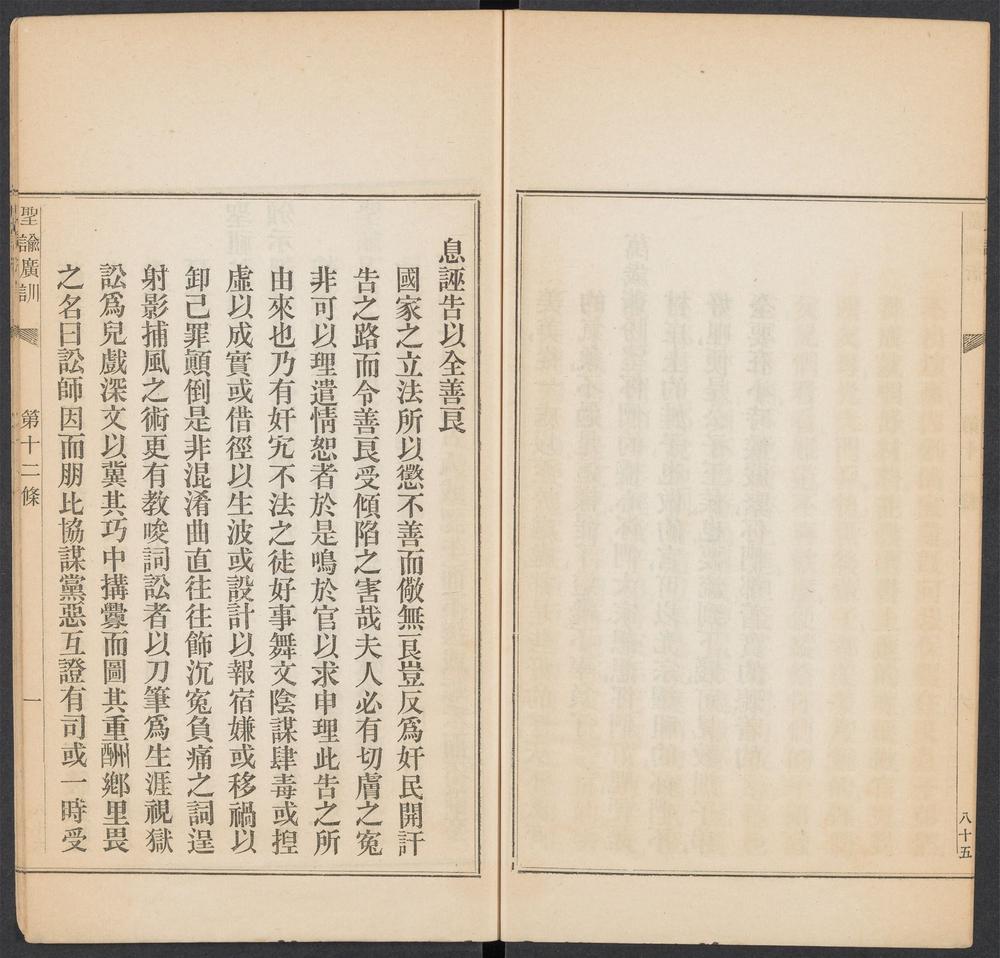 八十五
息誣告以全善良
國家之立法所以懲不善而儆無良豈反為奸民開訐
告之路而令善良受傾陷之害哉夫人必有切膚之冤
非可以理遣情恕者於是鳴於官以求申理此告之所
由來也乃有奸宄不法之徒好事舞文陰謀肆毒或揑
虛以成實或借徑以生波或設計以報宿嫌或移禍以
卸己罪顚倒是非混淆曲直往往飾沉冤負痛之詞逞
射影捕風之術更有教唆詞訟者以刀筆爲生涯視獄
訟爲兒戲深文以冀其巧中搆釁而圖其重酬鄉里畏
之名曰訟師因而朋比協謀黨惡互證有司或一時受
聖諭廣訓
第十二條
一